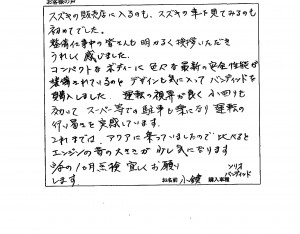 お客様の声
スズキの販売店に入るのも、スズキの車を見てみるのも
初めてでした。
整備仕事中の皆さんも明るく挨拶いただき
うれしく感じました。
コンパクトなボディーに色々な最新の安全性能が
整備されているのとデザインも気に入ってバンディットを
購入しました 運転の視界が良く小回りも
効いてスーパー等での駐車も楽になり運転の
行い易さを実感しています。
これまでは、アクアに乗っていましたので比べると
エンジンの音の大きさが少し気になります
今後の1ヵ月点検宜しくお願い
します
お名前 小鍵 購入車種 ソリオ
バンディット